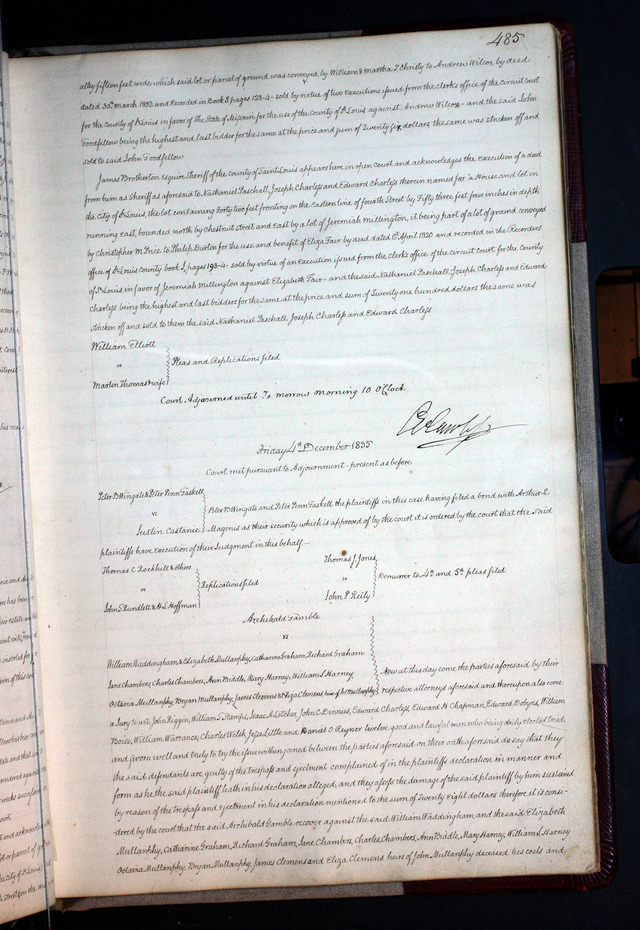 485
alley fifteen feet wide, which said lot or parcel of ground was conveyed by William & Martha T Christy to Andrew Wilcox, by deed
dated 30th March 1832 and Recorded in Book S pages 123-4 - sold by virtue of two Executions issued from the Clerk's office of the Circuit court
for the County of St Louis in favor of The State of Missouri for the use of the County of St Louis against Andrew Wilcox - and the said John
Goodfellow being the highest and last bidder for the same at the price and sum of Twenty six dollars the same was stricken off and
sold to said John Goodfellow
James Brotherton Esquire Sheriff of the County of Saint Louis appears here in open Court and acknowledges the Execution of a deed
from him as Sheriff aforesaid to Nathaniel Paschall, Joseph Charless and Edward Charless therein named for "a House and lot in
the City of St Louis, the lot containing Forty two feet fronting on the Eastern line of fourth Street by Fifty three feet four inches in depth
running east, bounded north by Chestnut street and East by a lot of Jeremiah Millington, it being part of a lot of ground conveyed
by Christopher M. Price to Philip Durton for the use and benefit of Eliza Fair by deed dated 1st April 1820 and recorded in the Recorders
office of St Louis county book J, pages 193-4 - sold by virtue of an Execution issued from the Clerks office of the circuit court for the County
of St Louis in favor of Jeremiah Millington against Elizabeth Fair - and the said, Nathaniel Paschall, Joseph Charless and Edward
Charless being the highest and last bidders for the same at the price and sum of Twenty one hundred dollars the same was
stricken off and sold to them the said Nathaniel Paschall, Joseph Charless and Edward Charless
William Elliott
vs
Martin Thomas & wife
Pleas and Replications filed
Court Adjourned until To morrow morning 10 O'Clock
Friday 4th December 1835
Court met pursuant to Adjournment - present as before
Peter B Wingate & Peter Penn Gaskell
vs
Justin Castanis
Peter B Wingate and Peter Penn Gaskell the plaintiffs in this case having filed a bond with Arthur L
Magenis as their security which is approved of by the court it is ordered by the court that the said
plaintiffs have execution of their Judgment in this behalf -
Thomas C Rockhill & others
vs
John S Rundlett & H L Hoffman
Replications filed
Thomas J Jones
vs
John P Reily
Demurrer to 4th and 5th pleas filed
Archibald Gamble
vs
William Waddingham & Elizabeth Mullanphy, Catharine Graham, Richard Graham
Jane Chambers, Charles Chambers, Ann Biddle, Mary Harney, William S Harney
Octavia Mullanphy, Bryan Mullanphy, James Clemens & Eliza Clemens heirs of Jno Mullanphy
Now at this day come the parties aforesaid by their
respective attorneys aforesaid and thereupon also come
a Jury to wit, John Riggin, William S Stamps, Isaac A Letcher, John C Dinnies, Edward Charless, Edward H Chapman, Edward Dobyns, William
Boice, William Warrance, Charles Welsh, Jesse Little and Daniel O Reyner twelve good and lawful men who being duly elected tried
and sworn well and truly to try the issue within joined between the parties aforesaid on their oath aforesaid do say that they
the said defendants are guilty of the trespass and ejectment complained of in the plaintiffs declaration in manner and
form as he the said plaintiff hath in his declaration alleged; and they assess the damage of the said plaintiff by him sustained
by reason of the trespass and ejectment in his declaration mentioned to the sum of Twenty Eight dollars therefore it is consi-
dered by the court that the said Archibald Gamble recover against the said William Waddingham, and the said Elizabeth
Mullanphy, Catharine Graham, Richard Graham, Jane Chambers, Charles Chambers, Ann Biddle, Mary Harney, William S Harney
Octavia Mullanphy, Bryan Mullanphy, James Clemens and Eliza Clemens heirs of John Mullanphy deceased his costs and